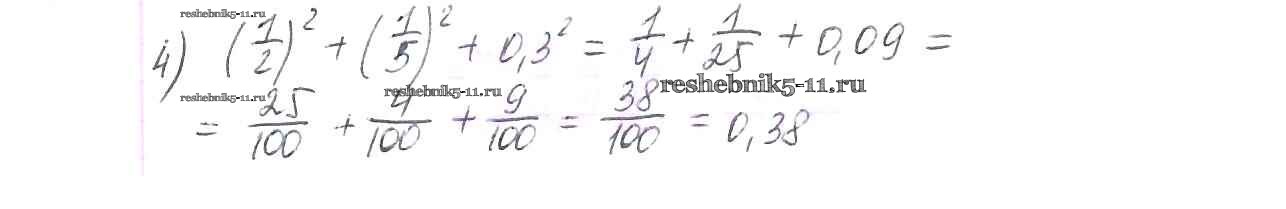 reshebnik5-11.ru
4) (1/2)² + (1/5)² + 0,3² = 1/4 + 1/25 + 0,09 =
reshebnik5-11.ru reshebnik5-11.ru reshebnik5-11.ru
= 25/100 + 4/100 + 9/100 = 38/100 = 0,38